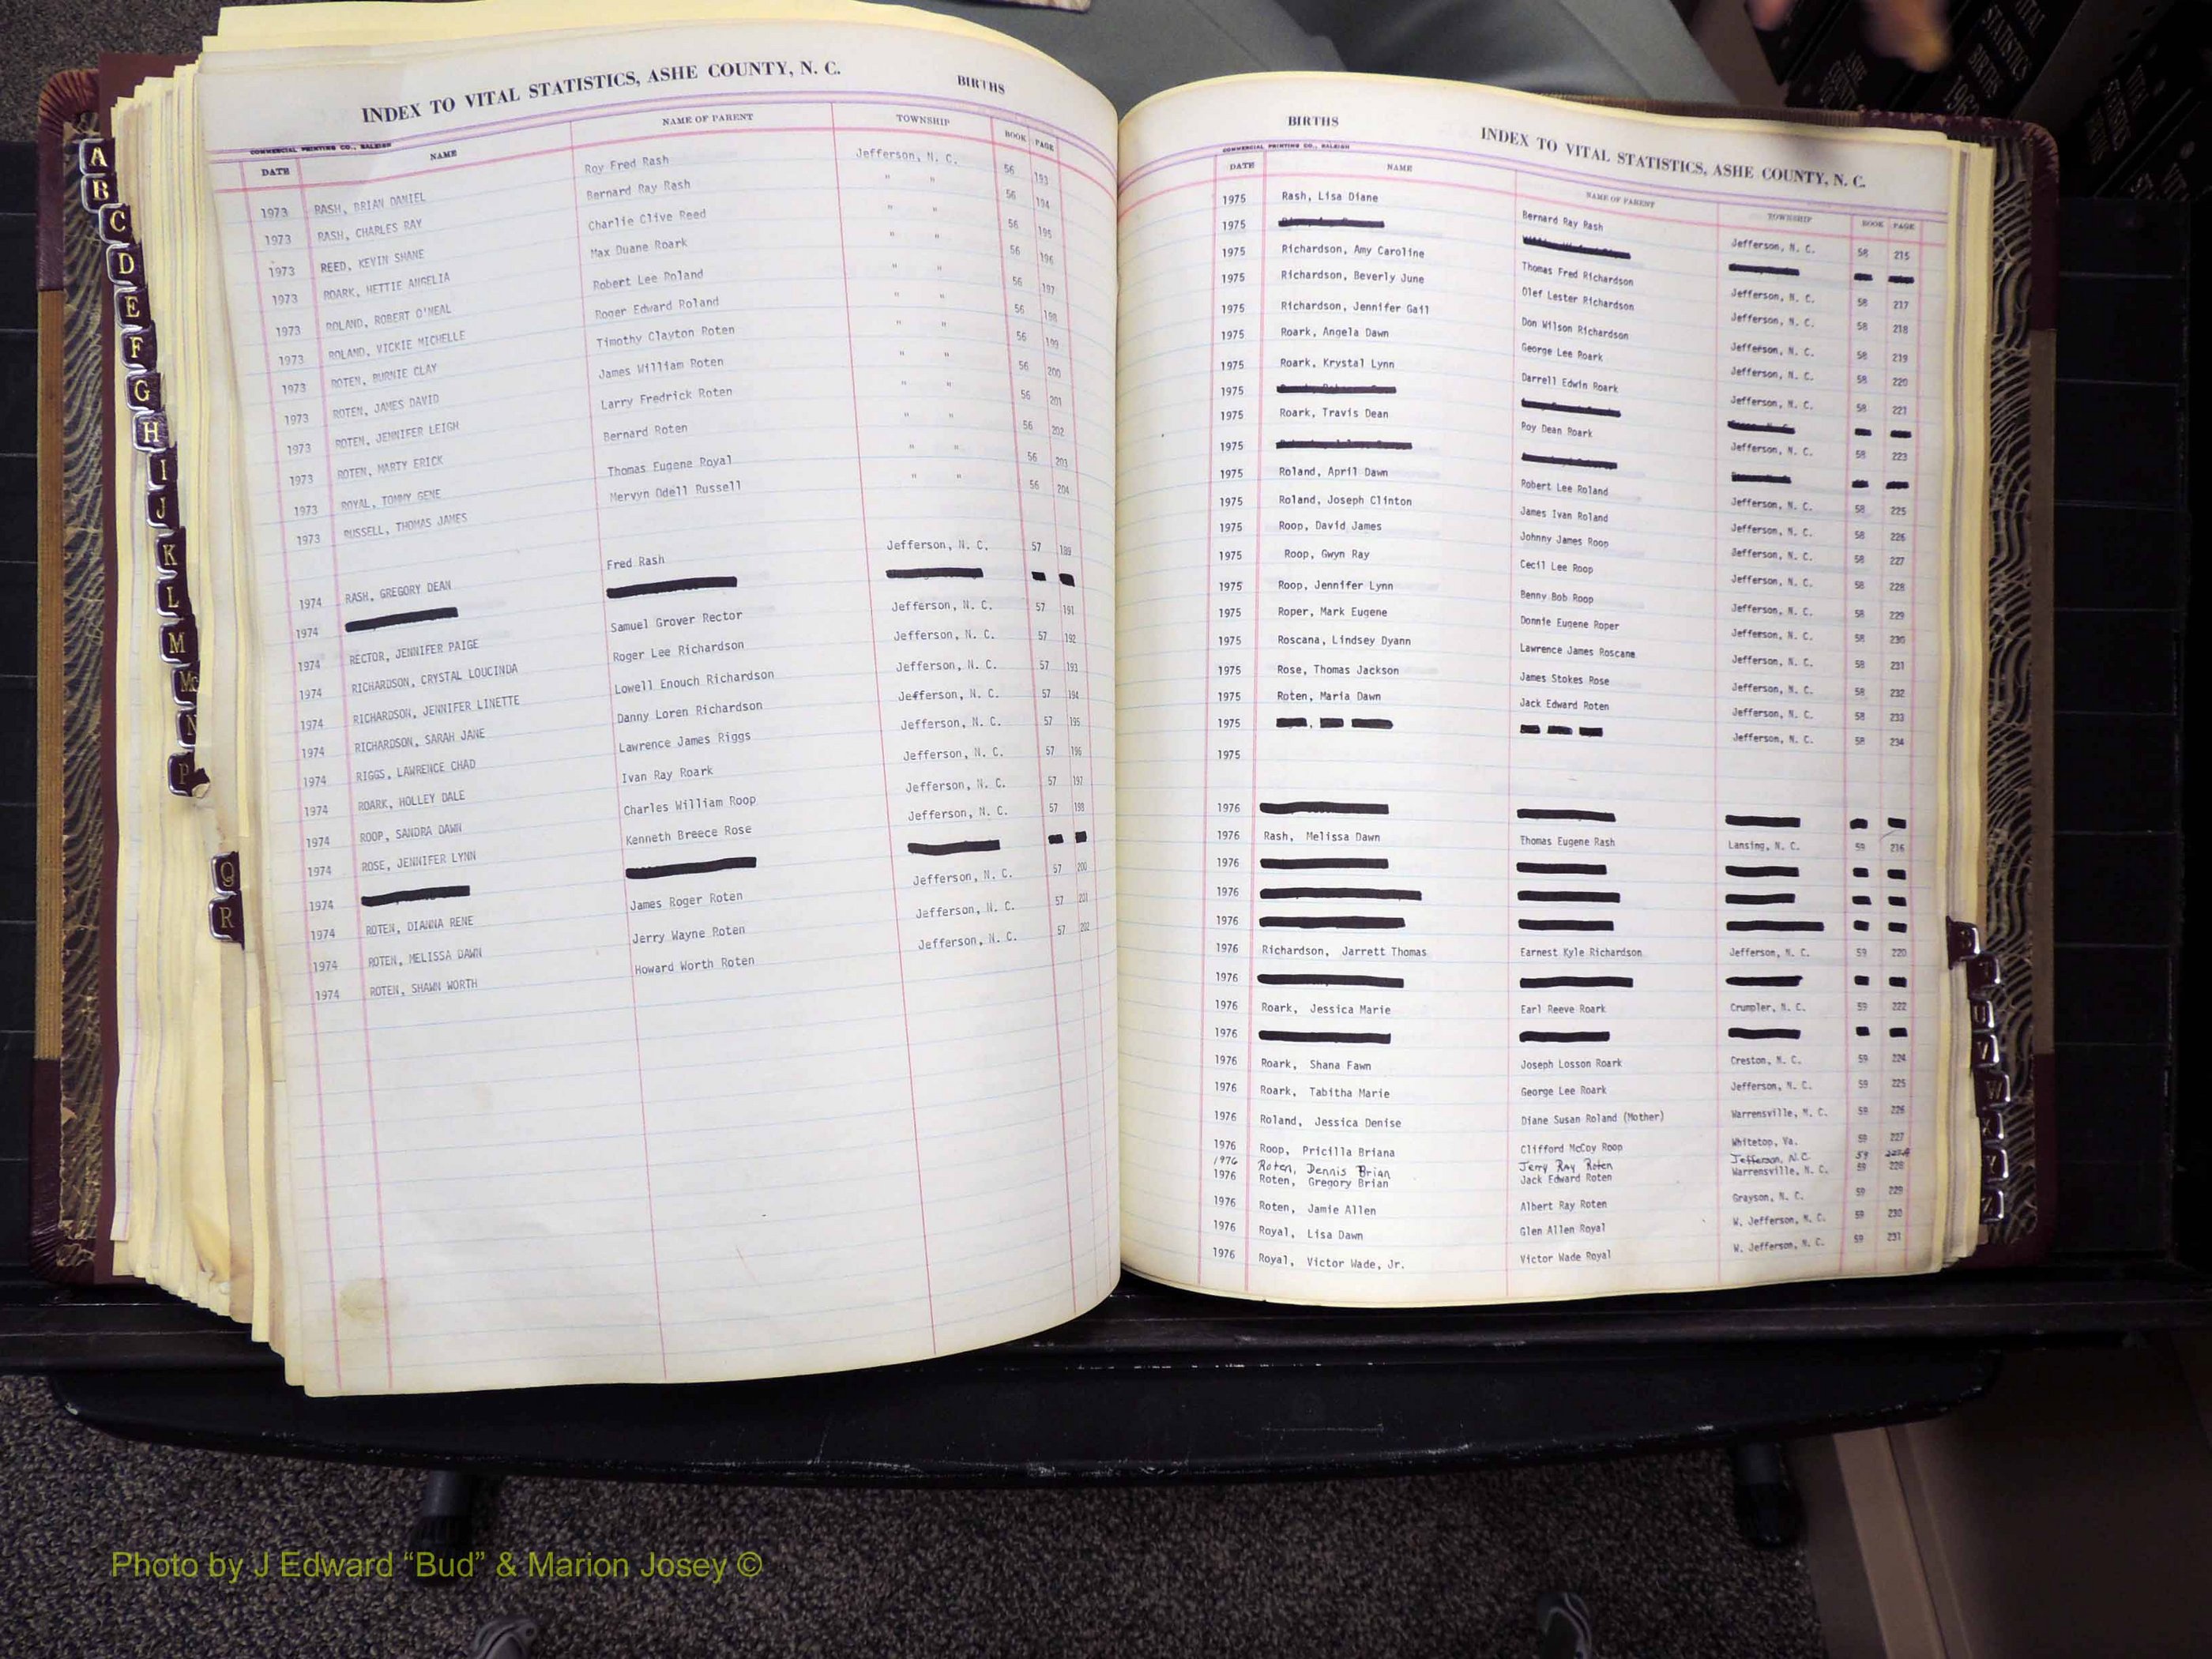 INDEX TO VITAL STATISTICS, ASHE COUNTY, N. C. BIRTHS
COMMERCIAL PRINTING CO., RALEIGH
DATE NAME NAME OF PARENT TOWNSHIP BOOK PAGE
1973 RASH, BRIAN DANIEL Roy Fred Rash Jefferson, N. C. 56 193
1973 RASH, CHARLES RAY Bernard Ray Rash " " 56 194
1973 REED, KEVIN SHANE Charlie Clive Reed " " 56 195
1973 ROARK, HETTIE ANGELIA Max Duane Roark " " 56 196
1973 ROLAND, ROBERT O'NEAL Robert Lee Roland " " 56 197
1973 ROLAND, VICKIE MICHELLE Roger Edward Roland " " 56 198
1973 ROTEN, BURNIE CLAY Timothy Clayton Roten " " 56 199
1973 ROTEN, JAMES DAVID James William Roten " " 56 200
1973 ROTEN, JENNIFER LEIGH Larry Fredrick Roten " " 56 201
1973 ROTEN, MARTY ERICK Bernard Roten " " 56 202
1973 ROYAL, TOMMY GENE Thomas Eugene Royal " " 56 203
1973 RUSSELL, THOMAS JAMES Mervyn Odell Russell " " 56 204
1974 RASH, GREGORY DEAN Fred Rash Jefferson, N. C. 57 189
1974
1974 RECTOR, JENNIFER PAIGE Samuel Grover Rector Jefferson, N. C. 57 191
1974 RICHARDSON, CRYSTAL LOUCINDA Roger Lee Richardson Jefferson, N. C. 57 192
1974 RICHARDSON, JENNIFER LINETTE Lowell Enouch Richardson Jefferson, N. C. 57 193
1974 RICHARDSON, SARAH JANE Danny Loren Richardson Jefferson, N. C. 57 194
1974 RIGGS, LAWRENCE CHAD Lawrence James Riggs Jefferson, N. C. 57 195
1974 ROARK, HOLLEY DALE Ivan Ray Roark Jefferson, N. C. 57 196
1974 ROOP, SANDRA DAWN Charles William Roop Jefferson, N. C. 57 197
1974 ROSE, JENNIFER LYNN Kenneth Breece Rose Jefferson, N. C. 57 198
1974
1974 ROTEN, DIANNA RENE James Roger Roten Jefferson, N. C. 57 200
1974 ROTEN, MELISSA DAWN Jerry Wayne Roten Jefferson, N. C. 57 201
1974 ROTEN, SHAWN WORTH Howard Worth Roten Jefferson, N. C. 57 202
BIRTHS INDEX TO VITAL STATISTICS, ASHE COUNTY, N. C.
COMMERCIAL PRINTING CO., RALEIGH
DATE NAME NAME OF PARENT TOWNSHIP BOOK PAGE
1975 Rash, Lisa Diane Bernard Ray Rash Jefferson, N. C. 58 215
1975
1975 Richardson, Amy Caroline Thomas Fred Richardson Jefferson, N. C. 58 217
1975 Richardson, Beverly June Olef Lester Richardson Jefferson, N. C. 58 218
1975 Richardson, Jennifer Gail Don Wilson Richardson Jefferson, N. C. 58 219
1975 Roark, Angela Dawn George Lee Roark Jefferson, N. C. 58 220
1975 Roark, Krystal Lynn Darrell Edwin Roark Jefferson, N. C. 58 221
1975
1975 Roark, Travis Dean Roy Dean Roark Jefferson, N. C. 58 223
1975
1975 Roland, April Dawn Robert Lee Roland Jefferson, N. C. 58 225
1975 Roland, Joseph Clinton James Ivan Roland Jefferson, N. C. 58 226
1975 Roop, David James Johnny James Roop Jefferson, N. C. 58 227
1975 Roop, Gwyn Ray Cecil Lee Roop Jefferson, N. C. 58 228
1975 Roop, Jennifer Lynn Benny Bob Roop Jefferson, N. C. 58 229
1975 Roper, Mark Eugene Donnie Eugene Roper Jefferson, N. C. 58 230
1975 Roscana, Lindsey Dyann Lawrence James Roscana Jefferson, N. C. 58 231
1975 Rose, Thomas Jackson James Stokes Rose Jefferson, N. C. 58 232
1975 Roten, Maria Dawn Jack Edward Roten Jefferson, N. C. 58 233
1975 Jefferson, N. C. 58 234
1975
1976
1976 Rash, Melissa Dawn Thomas Eugene Rash Lansing, N. C. 59 216
1976
1976
1976
1976 Richardson, Jarrett Thomas Earnest Kyle Richardson Jefferson, N. C. 59 220
1976
1976 Roark, Jessica Marie Earl Reeve Roark Crumpler, N. C. 59 222
1976
1976 Roark, Shana Fawn Joseph Losson Roark Creston, N. C. 59 224
1976 Roark, Tabitha Marie George Lee Roark Jefferson, N. C. 59 225
1976 Roland, Jessica Denise Diane Susan Roland (Mother) Warrensville, N. C. 59 226
1976 Roop, Pricilla Briana Clifford McCoy Roop Whitetop, Va. 59 227
1976 Roten, Dennis Brian Jerry Ray Roten Jefferson, N.C. 59 227A
1976 Roten, Gregory Brian Jack Edward Roten Warrensville, N. C. 59 228
1976 Roten, Jamie Allen Albert Ray Roten Grayson, N. C. 59 229
1976 Royal, Lisa Dawn Glen Allen Royal W. Jefferson, N. C. 59 230
1976 Royal, Victor Wade, Jr. Victor Wade Royal W. Jefferson, N. C. 59 231
A
B
C
D
E
F
G
H
I
J
K
L
M
Mc
N
P
Q
R
S
T
U
V
W
X
Y
Z
VITAL
STATISTICS
BIRTHS
Photo by J Edward “Bud” & Marion Josey ©